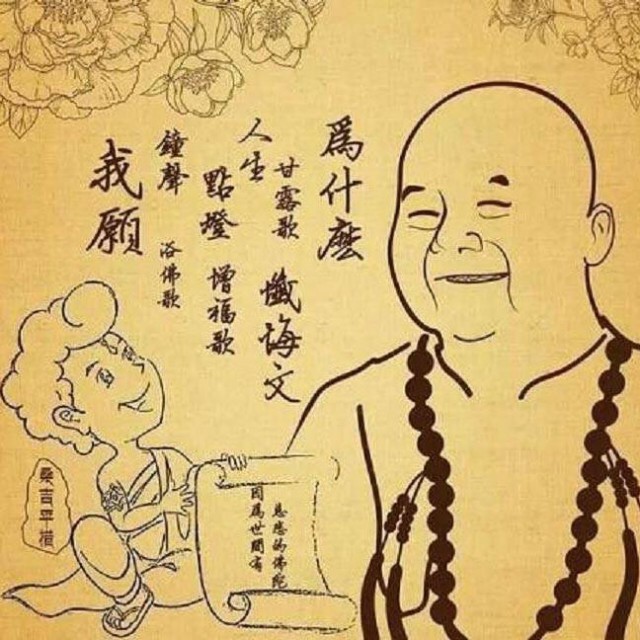 為什麼
甘露歌
懺悔文
人生
點燈
增福歌
鐘聲
浴佛歌
我願
慈悲的佛陀
因為世間有
桑吉平措